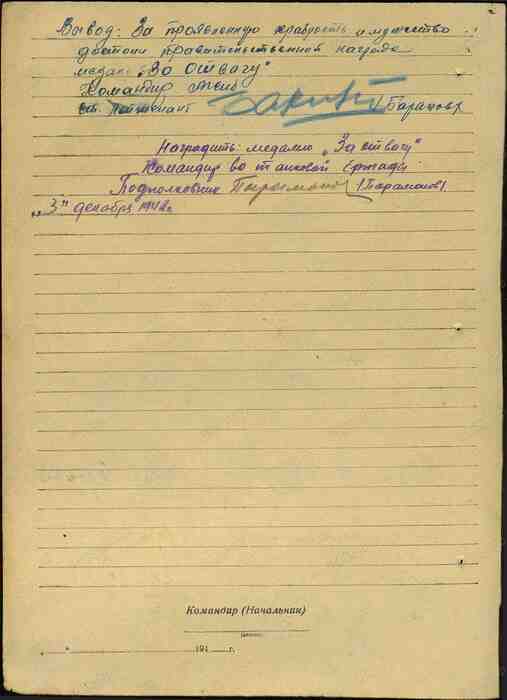 Вывод: За проявленную храбрость и мужество
достоин правительственной награде
медаль "За отвагу"
Командир
ст. лейтенант /Баранов/
Наградить медалью "За отвагу"
Командир 80 танковой бригады
Подполковник /Парамонов/.
"3" декабря 1942г.
Командир (Начальник)
194 г.